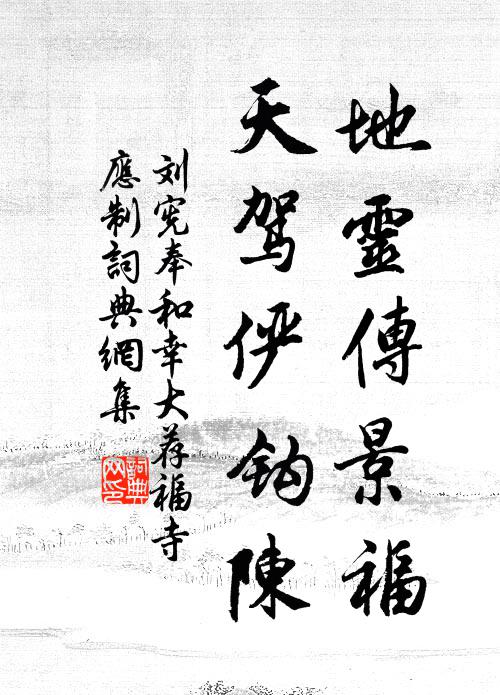 地靈傳景福
天驾俨钩陳
刘宪奉和幸大荐福寺
應制詞典網集
詞典网印